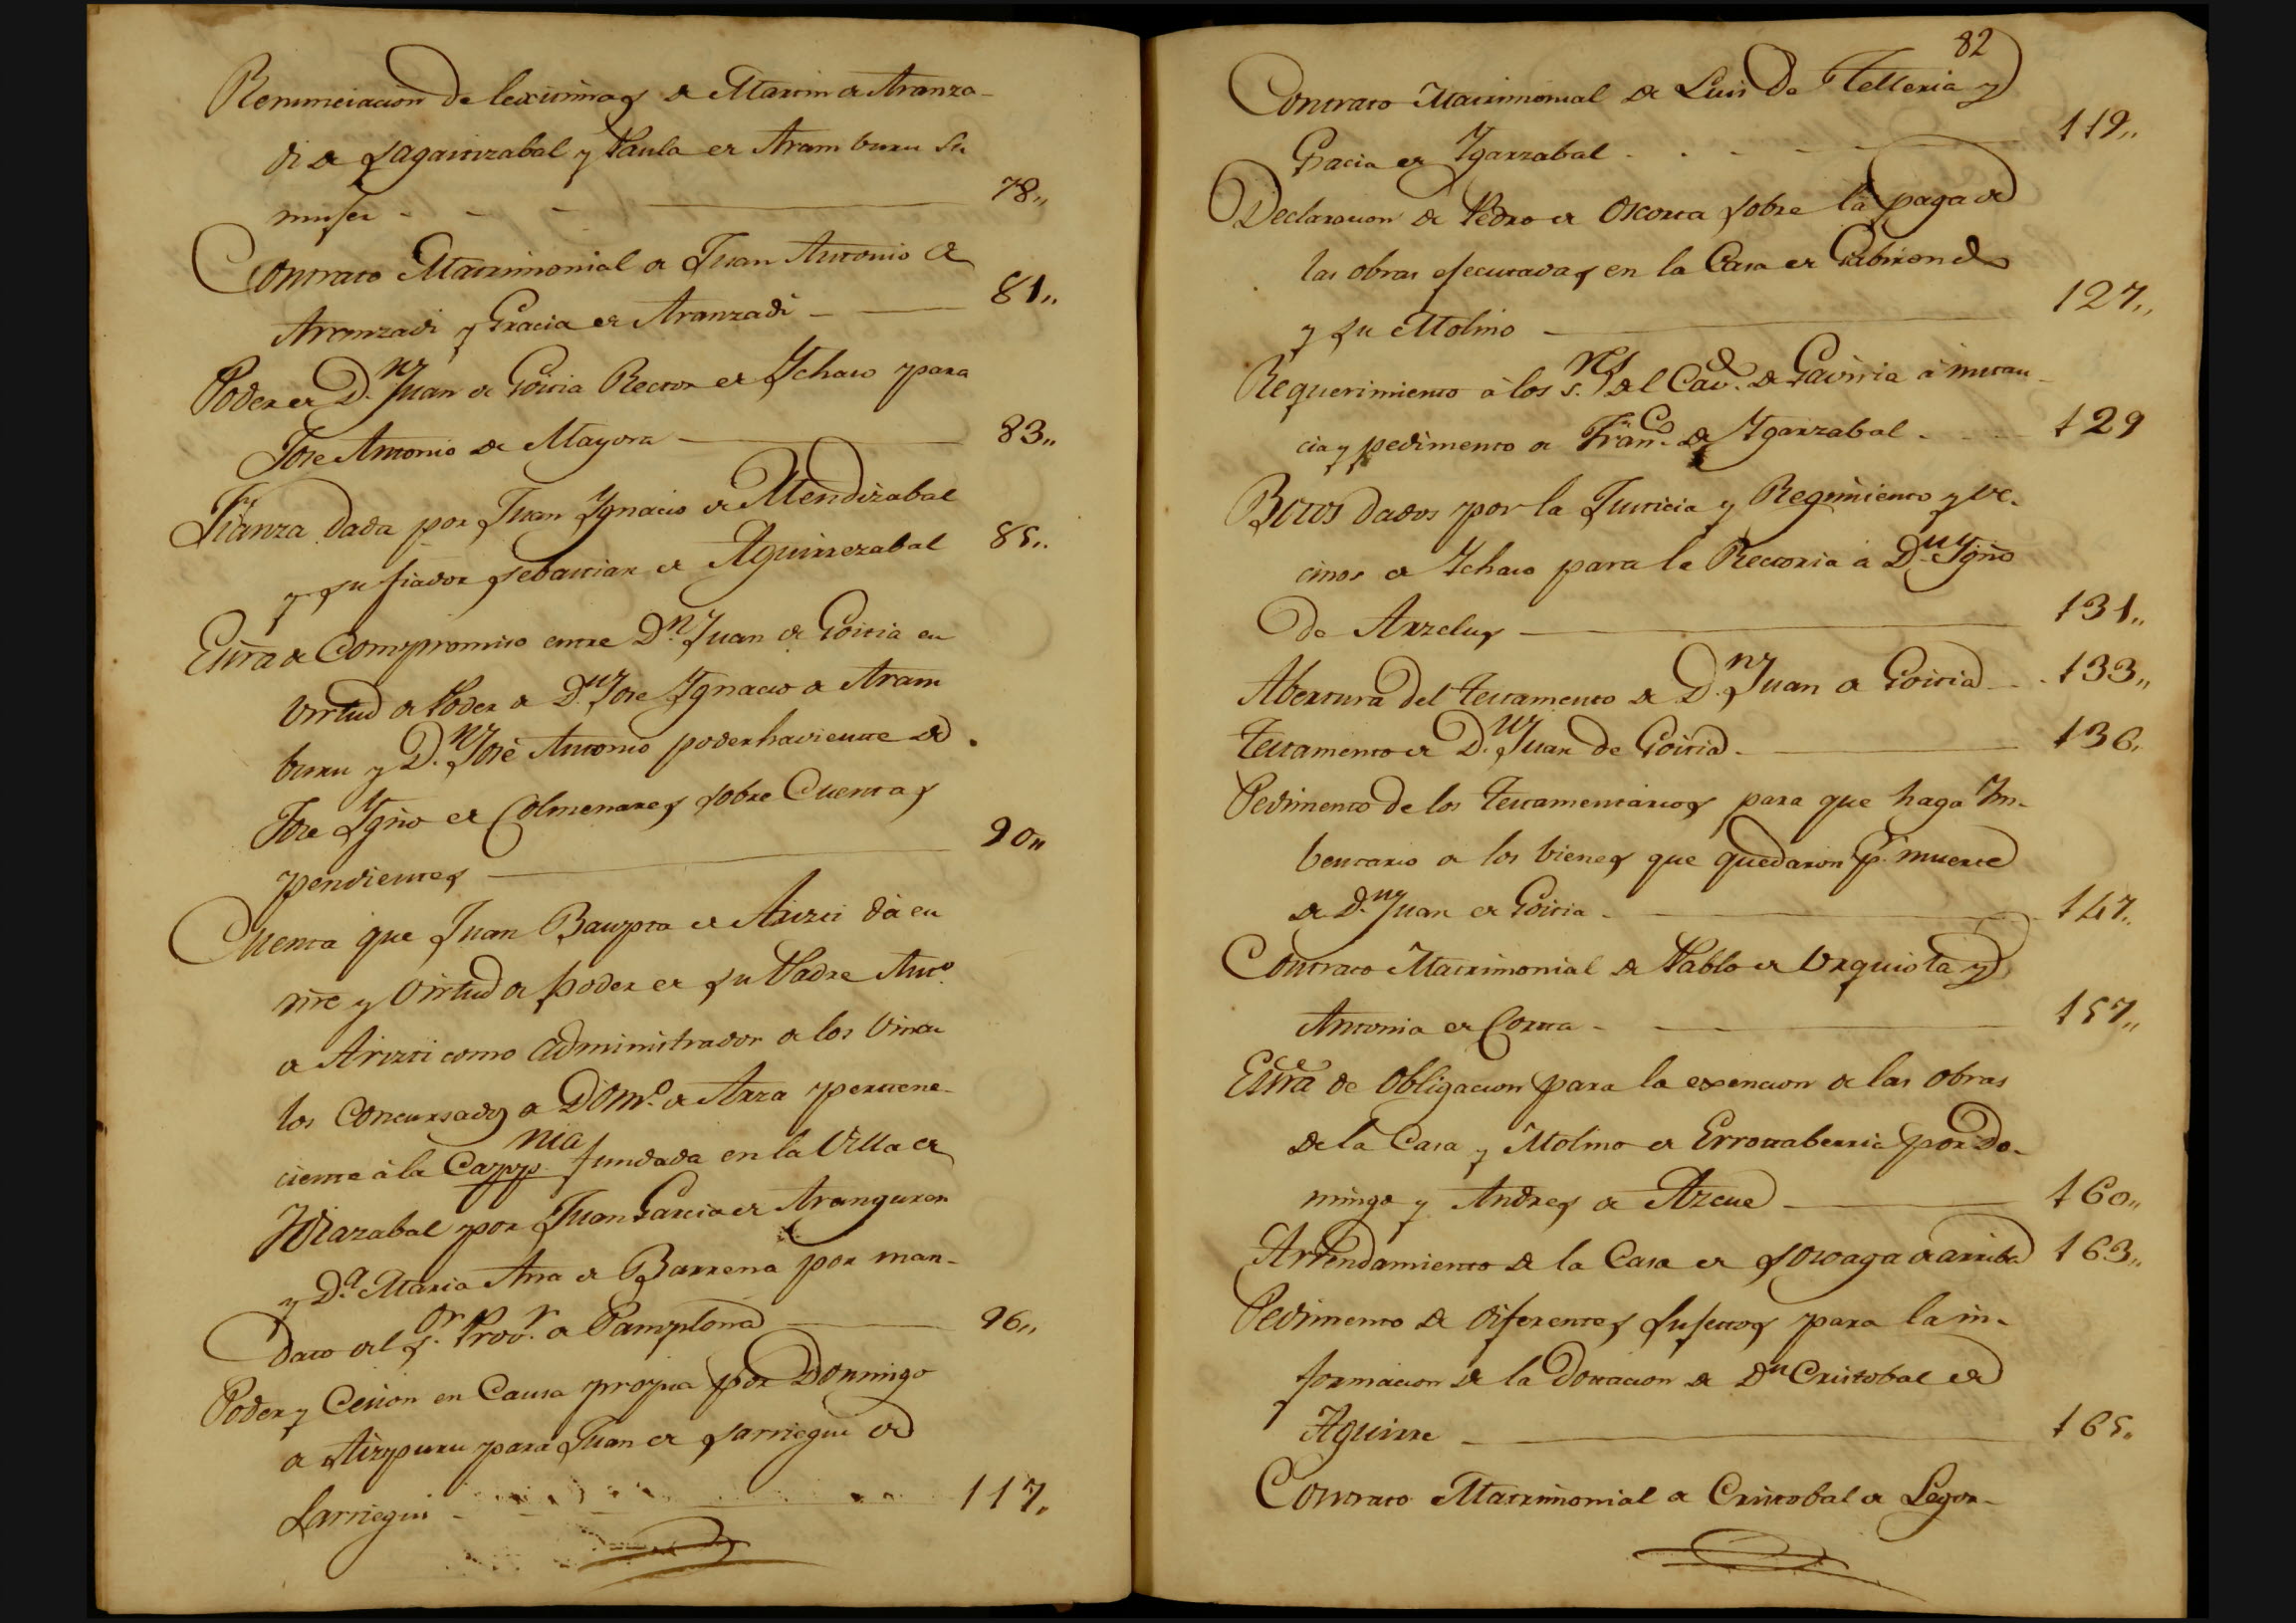 Renunciacion de lexitimas de Martin de Aranza-
di de Sagastizabal y Paula de Aramburu su
muger - - - 78,,
Contrato Matrimonial de Juan Antonio de
Aranzadi y Gracia de Aranzadi - 81,,
Poder de D.n Juan de Goitia Rector de Ychaso para
Jose Antonio de Mayora - 83,,
Fianza dada por Juan Ygnacio de Mendizabal
y su fiador Sebastian de Aguirrezabal 85,,
Esrra de Compromiso entre D.n Juan de Goitia en
virtud de Poder de D.n Jose Ygnacio de Aram
buru y D.n José Antonio poderhaviente de
Jose Ygño de Colmenares sobre Cuentas
pendientes - 90,,
Cuenta que Juan Baupta de Arizti dá en
nre y virtud de poder de su Padre Anto
de Arizti como administrador de los vincu
los Concursados de Dom.o de Arza pertene-
ciente á la Capp.nia fundada en la Villa de
Ydiazabal por Juan Garcia de Aranguren
y D.a Maria Ana de Barrena por man-
dato del S.or Prov.r de Pamplona - 96,,
Poder y Cesion en Causa propia por Domingo
de Aizpuru para Juan de Sarriegui de
Larriegui - 117,,
82
Contrato Matrimonial de Luis de Telleria y
Gracia de Ygarzabal - - - 119,,
Declaracion de Pedro de Oscorta sobre la paga de
las obras executadas en la Casa de Gabirondo
y su Molino - 127,,
Requerimiento á los S.res del Cav.do de Gaviria á instan-
cia y pedimento de Fran.co de Ygarzabal - - 129
Botos dados por la Justicia y Regimiento y ve-
cinos de Ychaso para la Rectoria á D.n Ygño
de Arzelus - 131,,
Abertura del testamento de D.n Juan de Goitia - 133,,
Testamento de D.n Juan de Goitia - 136,,
Pedimento de los Testamentarios para que haga In-
bentario de los bienes que quedaron p.r muerte
de D.n Juan de Goitia - 147,,
Contrato Matrimonial de Pablo de Urquiola y
Antonia de Corta - 157,,
Esrra de obligacion para la exencion de las obras
de la Casa y Molino de Errotaberria por Do-
mingo y Andres de Azcue - 160,,
Arrendamiento de la Casa de Soroaga de arriba 163,,
Pedimento de diferentes sujetos para la in-
formacion de la Dotacion de D.n Cristobal de
Aguirre - 165,,
Contrato Matrimonial de Cristobal de Legor-